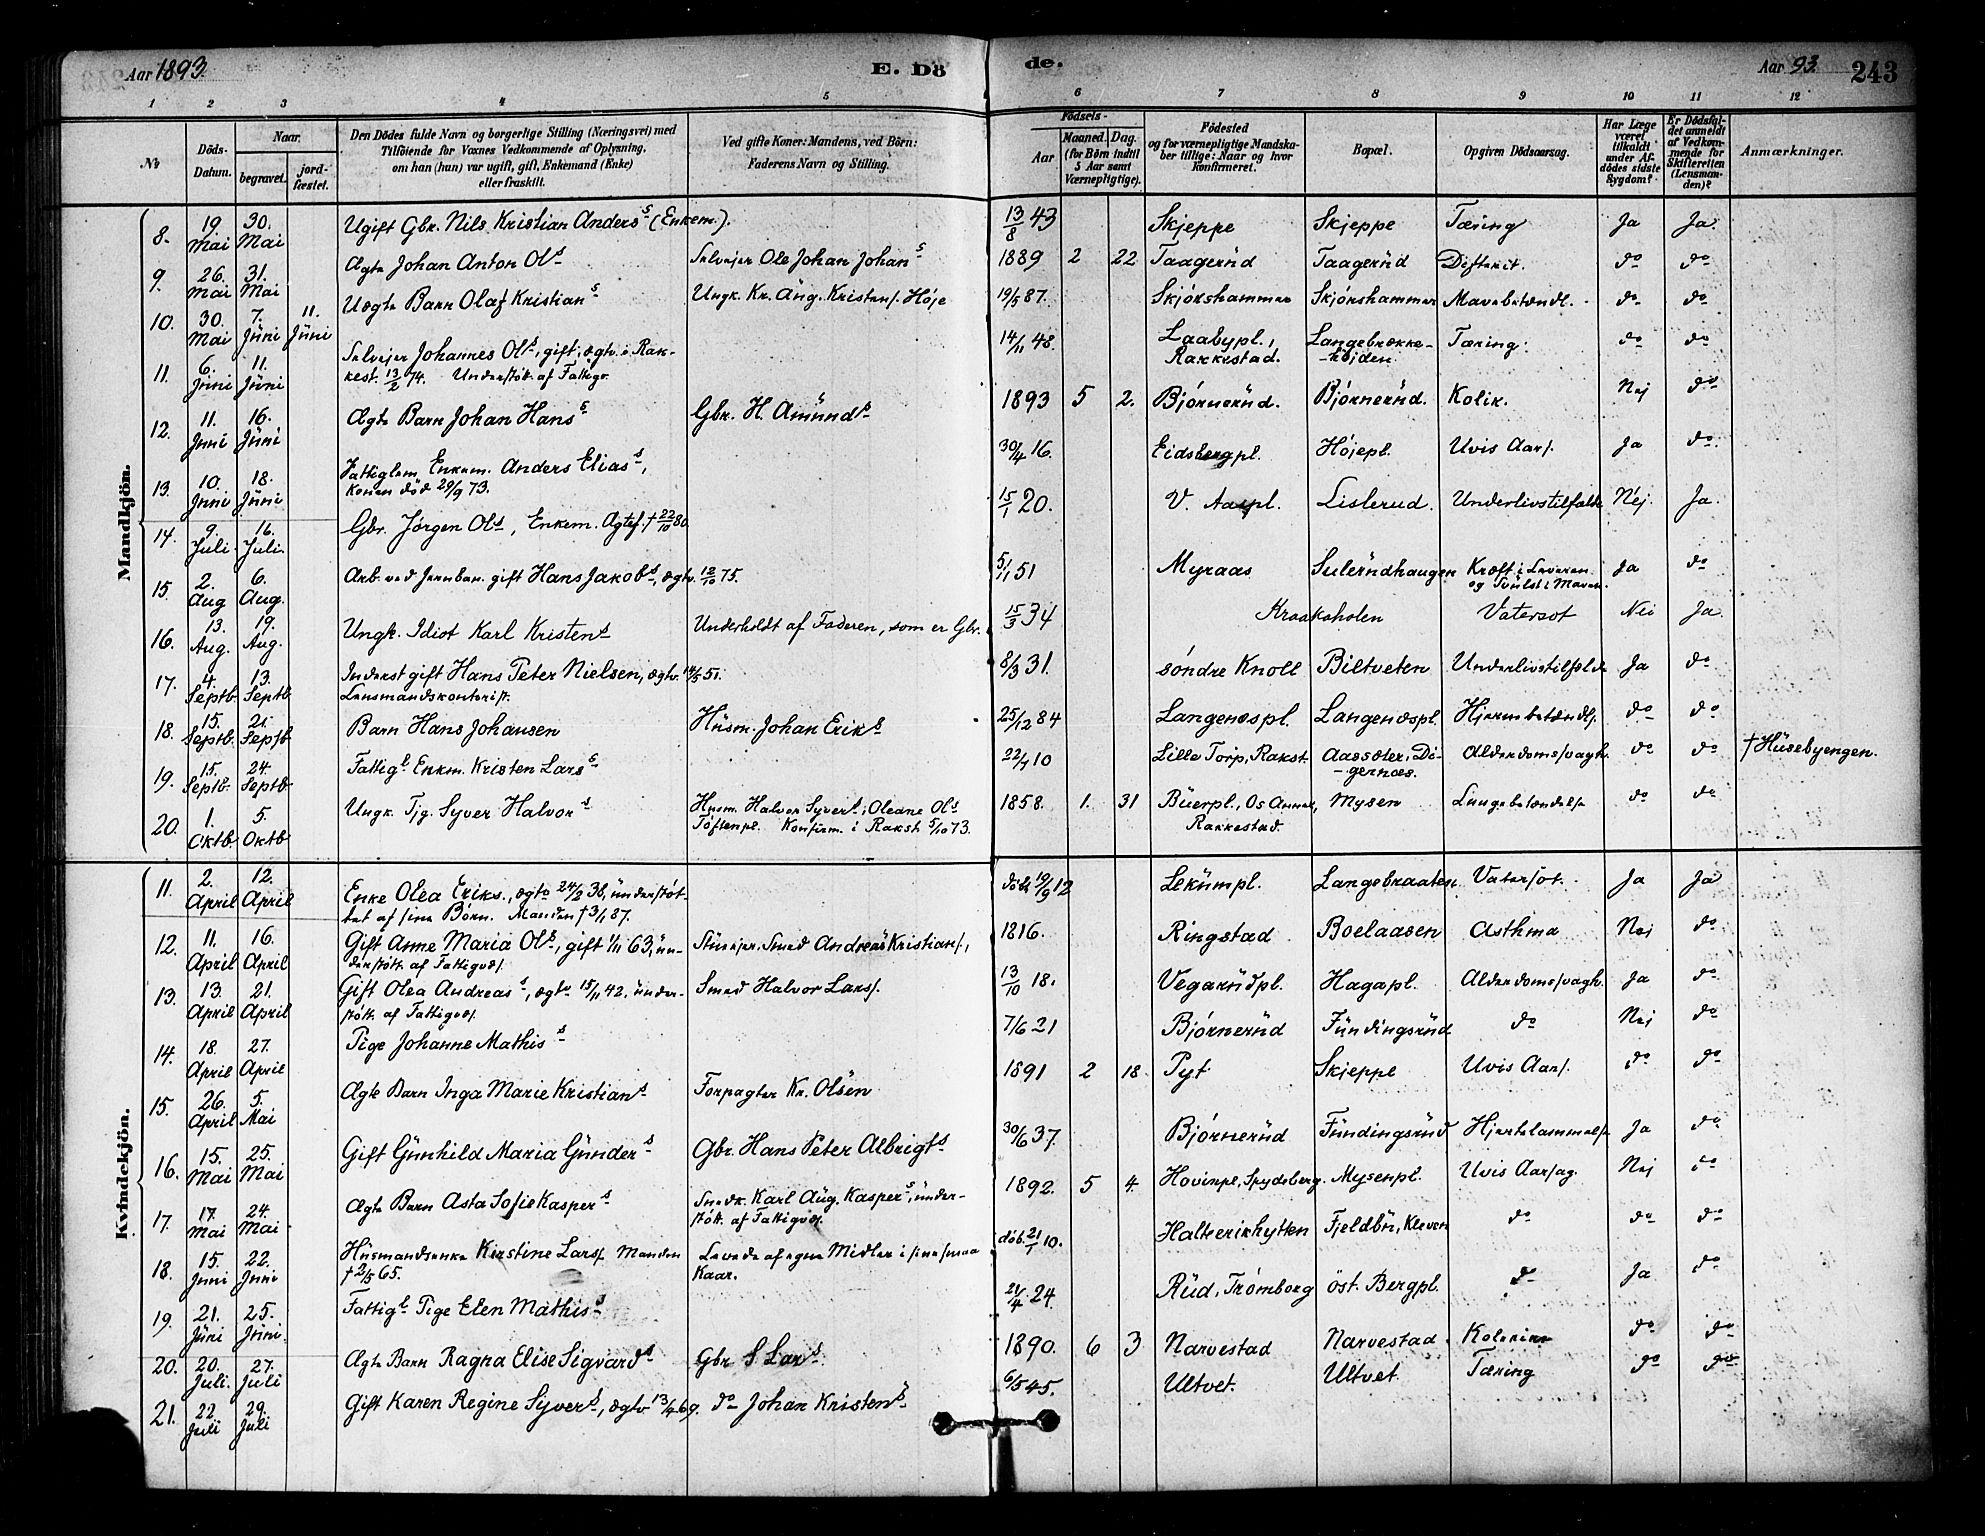 Aar 1893. E. Dö de. Aar 93. 243
1 2 3 4 5 6 7 8 9 10 11 12
No
Döds-Datum.
Naar.
begravet.
jord-fæstet.
Den Dödes fulde Navn og borgerlige Stilling (Næringsvei) med
Tilföiende for Voxnes Vedkommende af Oplysning,
om han (hun) var ugift, gift, Enkemand (Enke)
eller fraskilt.
Ved gifte Koner: Mandens, ved Börn:
Faderens Navn og Stilling.
Födsels-
Aar
Maaned. Dag.
(for Børn indtil
5 Aar samt
Værnepligtige).
Födested
og for værnepligtige Mandska-
ber tillige: Naar og hvor
Konfirmeret.
Bopæl.
Opgiven Dödsaarsag.
Har Læge
været
tilkaldt
under Af-
dödes sidste
Sygdom?
Er Dödsfal-
det anmeldt
af Vedkom-
mende for
Skifteretten
(Lensman-
den)?
Anmærkninger.
Mandkjön.
8. 19. Mai 30. Mai Ugift Gbr. Nils Kristian Anders s (Enkem.). 13/8 43 Skjeppe Skjeppe Tæring Ja Ja.
9. 26. Mai 31. Mai Ægte Johan Anton Ols Selvejer Ole Johan Johans 1889 2 22 Taagerüd Taagerüd Difterit. do do
10. 30. Mai 7. Jüni 11. Jüni Uægte Barn Olaf Kristians Ungk. Kr. Aug. Kristens. Høje 19/5 87. Skjørshammer Skjørshammer Mavebetændl. do do
11. 6. Juni 11. Jüni Selvejer Johannes Ols, gift, ægtv. i Rak-
kest. 13/2 74. Understøt. af Fattigv. 14/11 48. Laabypl., Rakkestad. Langebrække-
-hejden. Tæring. do do
12. 11. Juni 16. Jüni Ægte Barn Johan Hans s Gbr. H. Amünds 1893 5 2. Bjørnerüd. Bjørnerüd. Kolik. Nej do
13. 10. Juni 18. Jüni Fattiglem Enkem. Anders Elias s,
Konen død 29/9 73. 30/4 16. Eidsbergpl. Højepl. Uvis Aars. Ja do
14. 9. Juli. 16. Juli. Gbr. Jørgen Ols, Enkem. Ægtef. † 22/10 80. 15/1 20. V. Aaspl. Lislerud. Underlivstilfælde Nej. Ja.
15. 2. Aug 6. Aug. Arb. ved Jernban. gift Hans Jakobs, ægtv. 12/10 75. 5/1 51 Myraas Sulerüdhaugen Kræft i Leveren
og Svulst i Maven. Ja do
16. 13. Aug. 19. Aug. Ungk. Idiot Karl Kristens Underholdt af Faderen, som er Gbr. 15/3 34 Kraakaholen Vatersot Nei Ja.
17. 4. Septb. 13. Septb. Inderst gift Hans Peter Nielsen, ægtv. 14/5 51.
Lensmandskontorist. 8/3 31. søndre Knoll Biltveten Underlivstilfælde Ja do
18. 15. Septb. 21. Septb. Barn Hans Johansen Hüsm. Johan Eriks 25/12 84 Langenæspl. Langenæspl. Hjernebetændls. do do
19. 15. Septb. 24. Septb. Fattigl. Enkm. Kristen Lars s 22/7 10 Lille Torp, Rakst. Aassæter, Di-
-gernæs. Alderdomssvagh. do do † Hüsebyengen.
20. 1. Oktb. 5. Oktb. Ungk. Tj. Syver Halvors Husm. Halvor Syvers, Oleane Ols
Toftenpl. Konfirm. i Rakst. 5/10 73. 1858. 1. 31 Büerpl., Os Annex,
Rakkestad. Mysen Lungebetændelse do do
Kvindekjön.
11. 2. April 12. April Enke Olea Eriks., ægtv 24/2 38, ünderstøt-
tet af sine Børn. Manden † 3/1 87. døbt 19/9 12 Lekümpl. Langebraaten. Vatersot. Ja Ja
12. 11. April 16. April Gift Anne Maria Ols, gift 1/11 63, ün-
derstøtt. af Fattigvæs. Smed Andreas Kristians., 1816. Ringstad Boelaasen Asthma Nej do
13. 13. April 21. April Gift Olea Andreas s, ægtv 15/11 42. ünder-
støtt. af Fattigvæs. Smed Halvor Lars. 13/10 18. Vegarüdpl. Hagapl. Alderdomssvagh. Ja do
14. 18. April 27. April Pige Johanne Mathis s 7/6 21 Bjørnerüd Fündingsrüd do Nej do
15. 26. April 5. Mai Ægte Barn Inga Marie Kristians Forpagter Kr. Olsen 1891 2 18. Pyt Skjeppe Uvis Aars. do do
16. 15. Mai 25. Mai Gift Günhild Maria Günders Gbr. Hans Peter Albrigts 30/6 37. Bjørnerüd Fündingsrüd Hjertelammelse Ja do
17. 17. Mai 24. Mai Ægte Barn Asta Sofie Kaspers Smedk. Karl Aüg. Kaspers, ünder-
støtt. af Fattigvæs. 1892. 5 4. Hovinpl., Spydeberg. Mysenpl. Uvis Aarsag. Nej do
18. 15. Juni 22. Juni Hüsmandsenke Kirstine Lars. Manden
† 2/5 65. Levede af egne Midler i sine smaa
Kaar. døb. 21/1 10. Halterikhytten Fjeldbü, Kleven do do do
19. 21. Jüni 25. Jüni. Fattigl Pige Elen Mathis s 24/4 24. Rüd, Trømborg öst. Bergpl. do Ja do
20. 20. Juli. 27. Juli Ægte Barn Ragna Elise Sigvards Gbr S Lars 1890. 6 3 Narvestad Narvestad. Kolerine do do
21. 22. Juli 29. Juli Gift Karen Regine Syvers, ægtv 13/4 69. do Johan Kristens 6/5 45. Ultvet. Ultvet Tæring do do